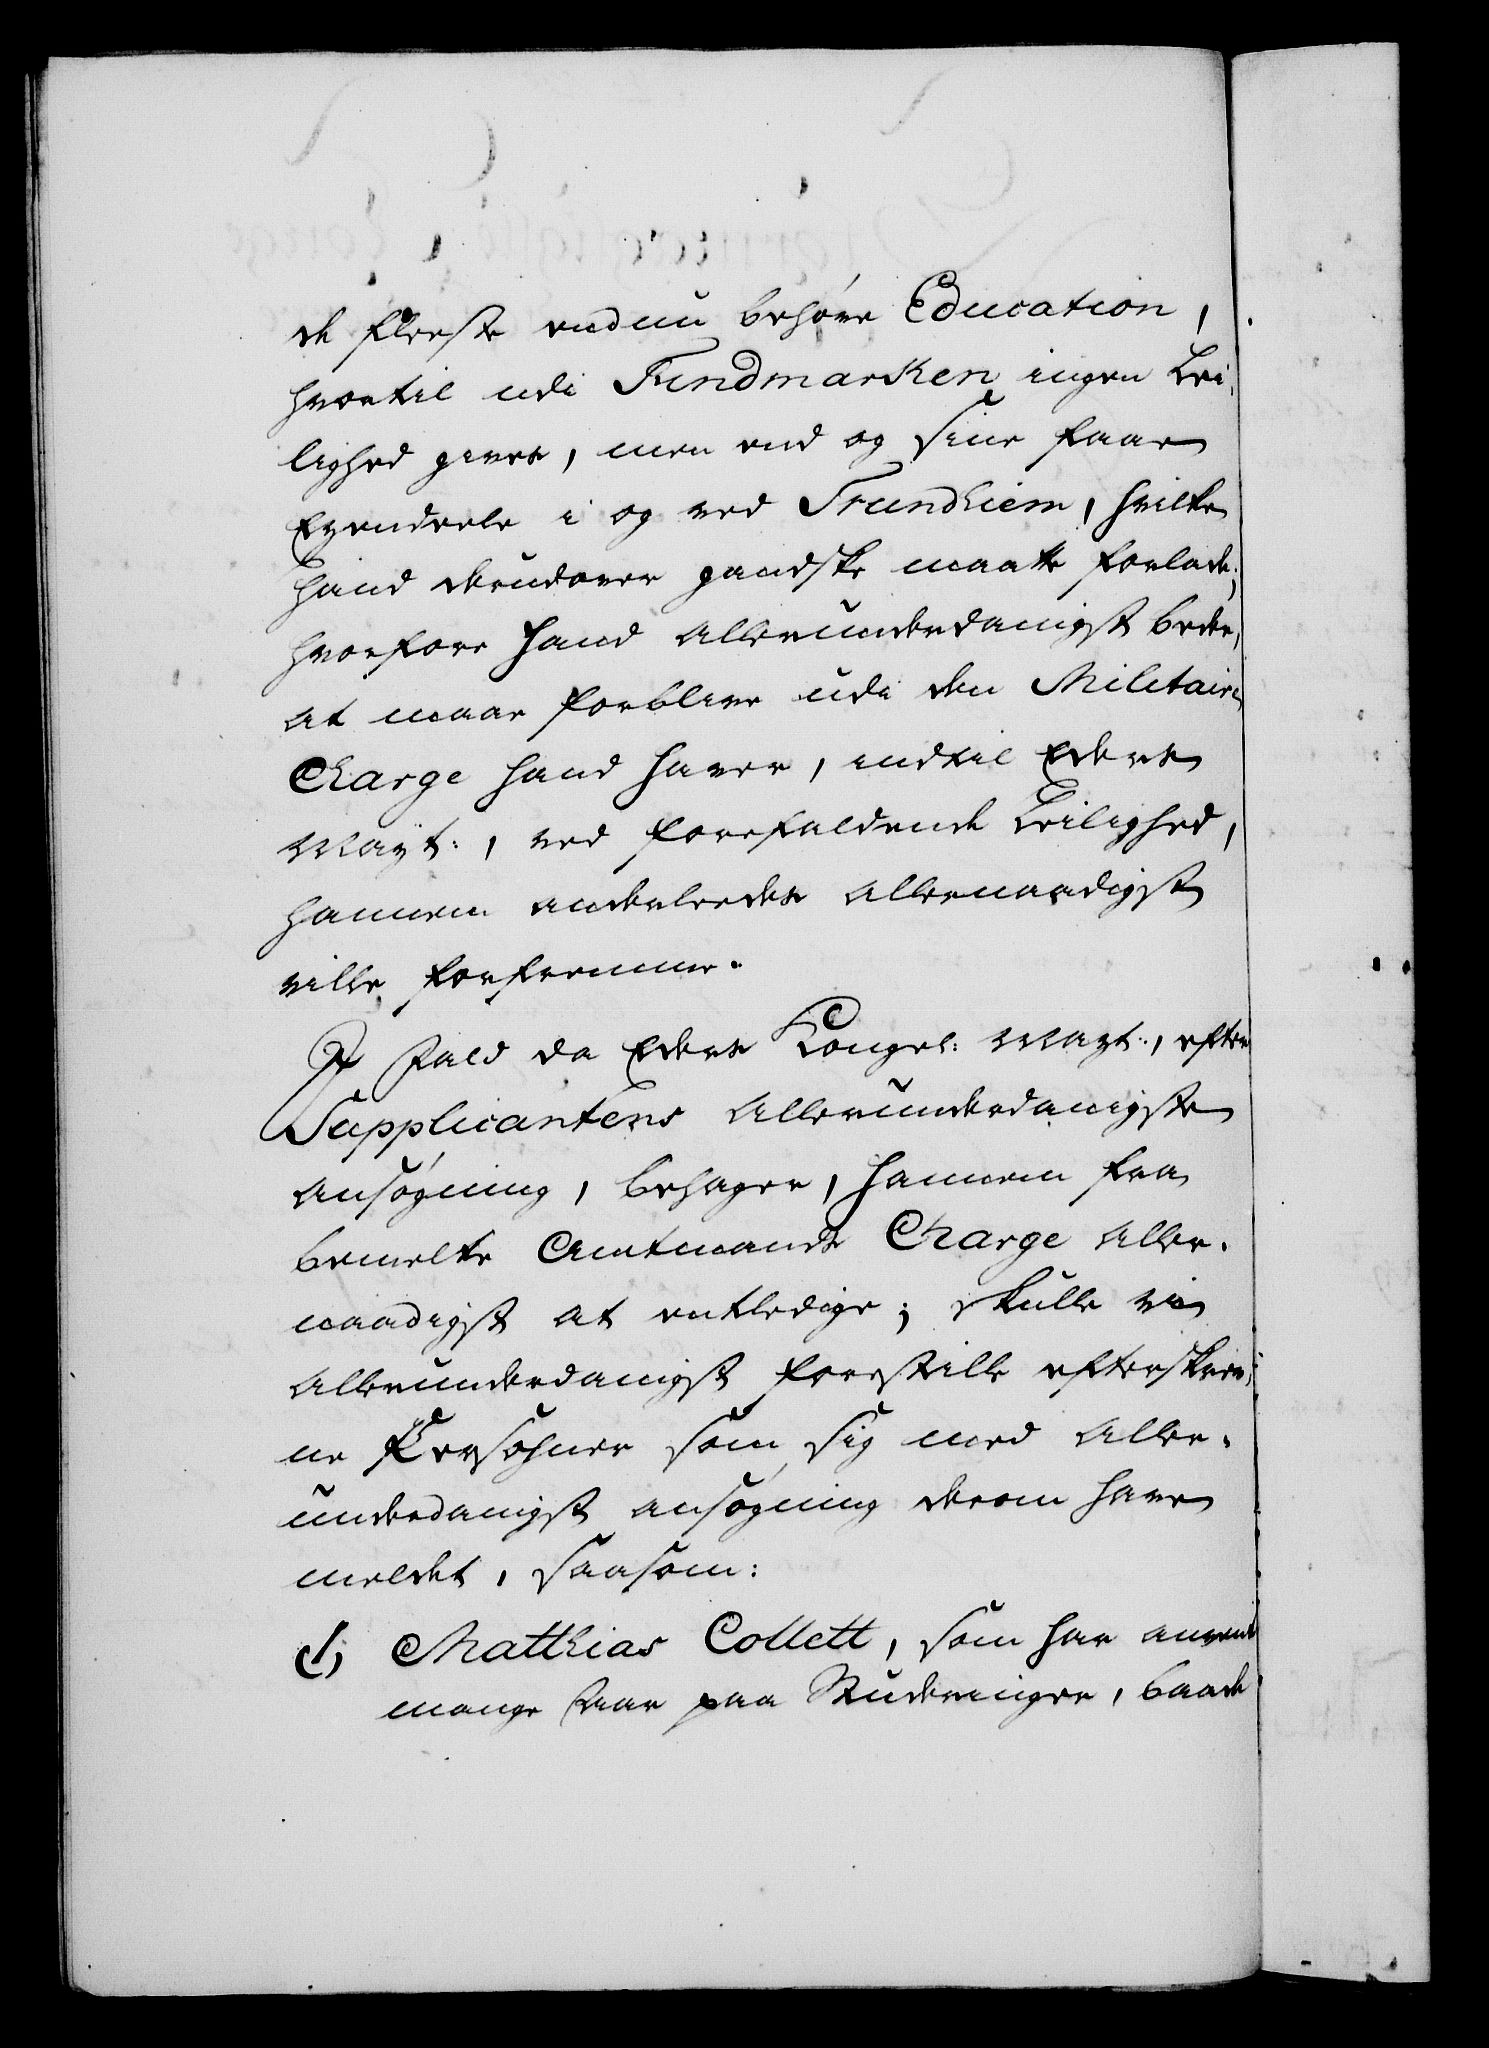 de fleeste endnu behøve Education,
hvortil udi Findmarken ingen Lei,
lighed gives, men end og sine faae
Eyendeele i og ved Trundhiem, hvilke
hand derudover gandske maatte forlade;
hvorfore hand allerunderdanigst beder,
at maae forblive udi den Militaire
Charge hand haver, indtil Eders
Mayt:, ved forefaldende Leilighed,
hannem anderleedes allernaadigst
ville forfremme.
I Fald da Eders Kongel: Mayt:, efter
Supplicantens allerunderdanigste
ansøgning, behager, hannem fra
bemelte Amtmands Charge aller.
naadigst at entledige; skulle vi
allerunderdanigst forestille efterskrev,
ne Persohner som sig med aller.
underdanigst ansøgning derom have
meldet, saasom:
1) Matthias Collett, som har anvendt
mange Aar paa Studeringer, baade